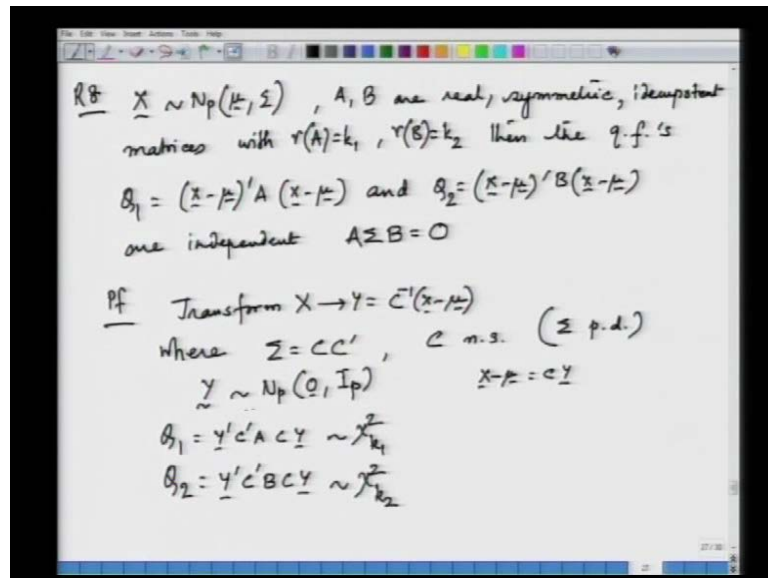 File Edit View Insert Actions Tools Help
R8 X ~ Np(μ, Σ) , A, B are real, symmetric, idempotent
matrices with r(A)=k₁ , r(B)=k₂ then the q.f.'s
Q₁ = (x-μ)'A (x-μ) and Q₂= (x-μ)'B(x-μ)
are independent AΣB = O
Pf Transform X → Y = C⁻¹(x-μ)
where Σ = CC' , C n.s. (Σ p.d.)
Y ~ Np (0, Ip) x-μ = CY
Q₁ = Y'C'A C Y ~ χ²k₁
Q₂ = Y'C'B C Y ~ χ²k₂
27/30